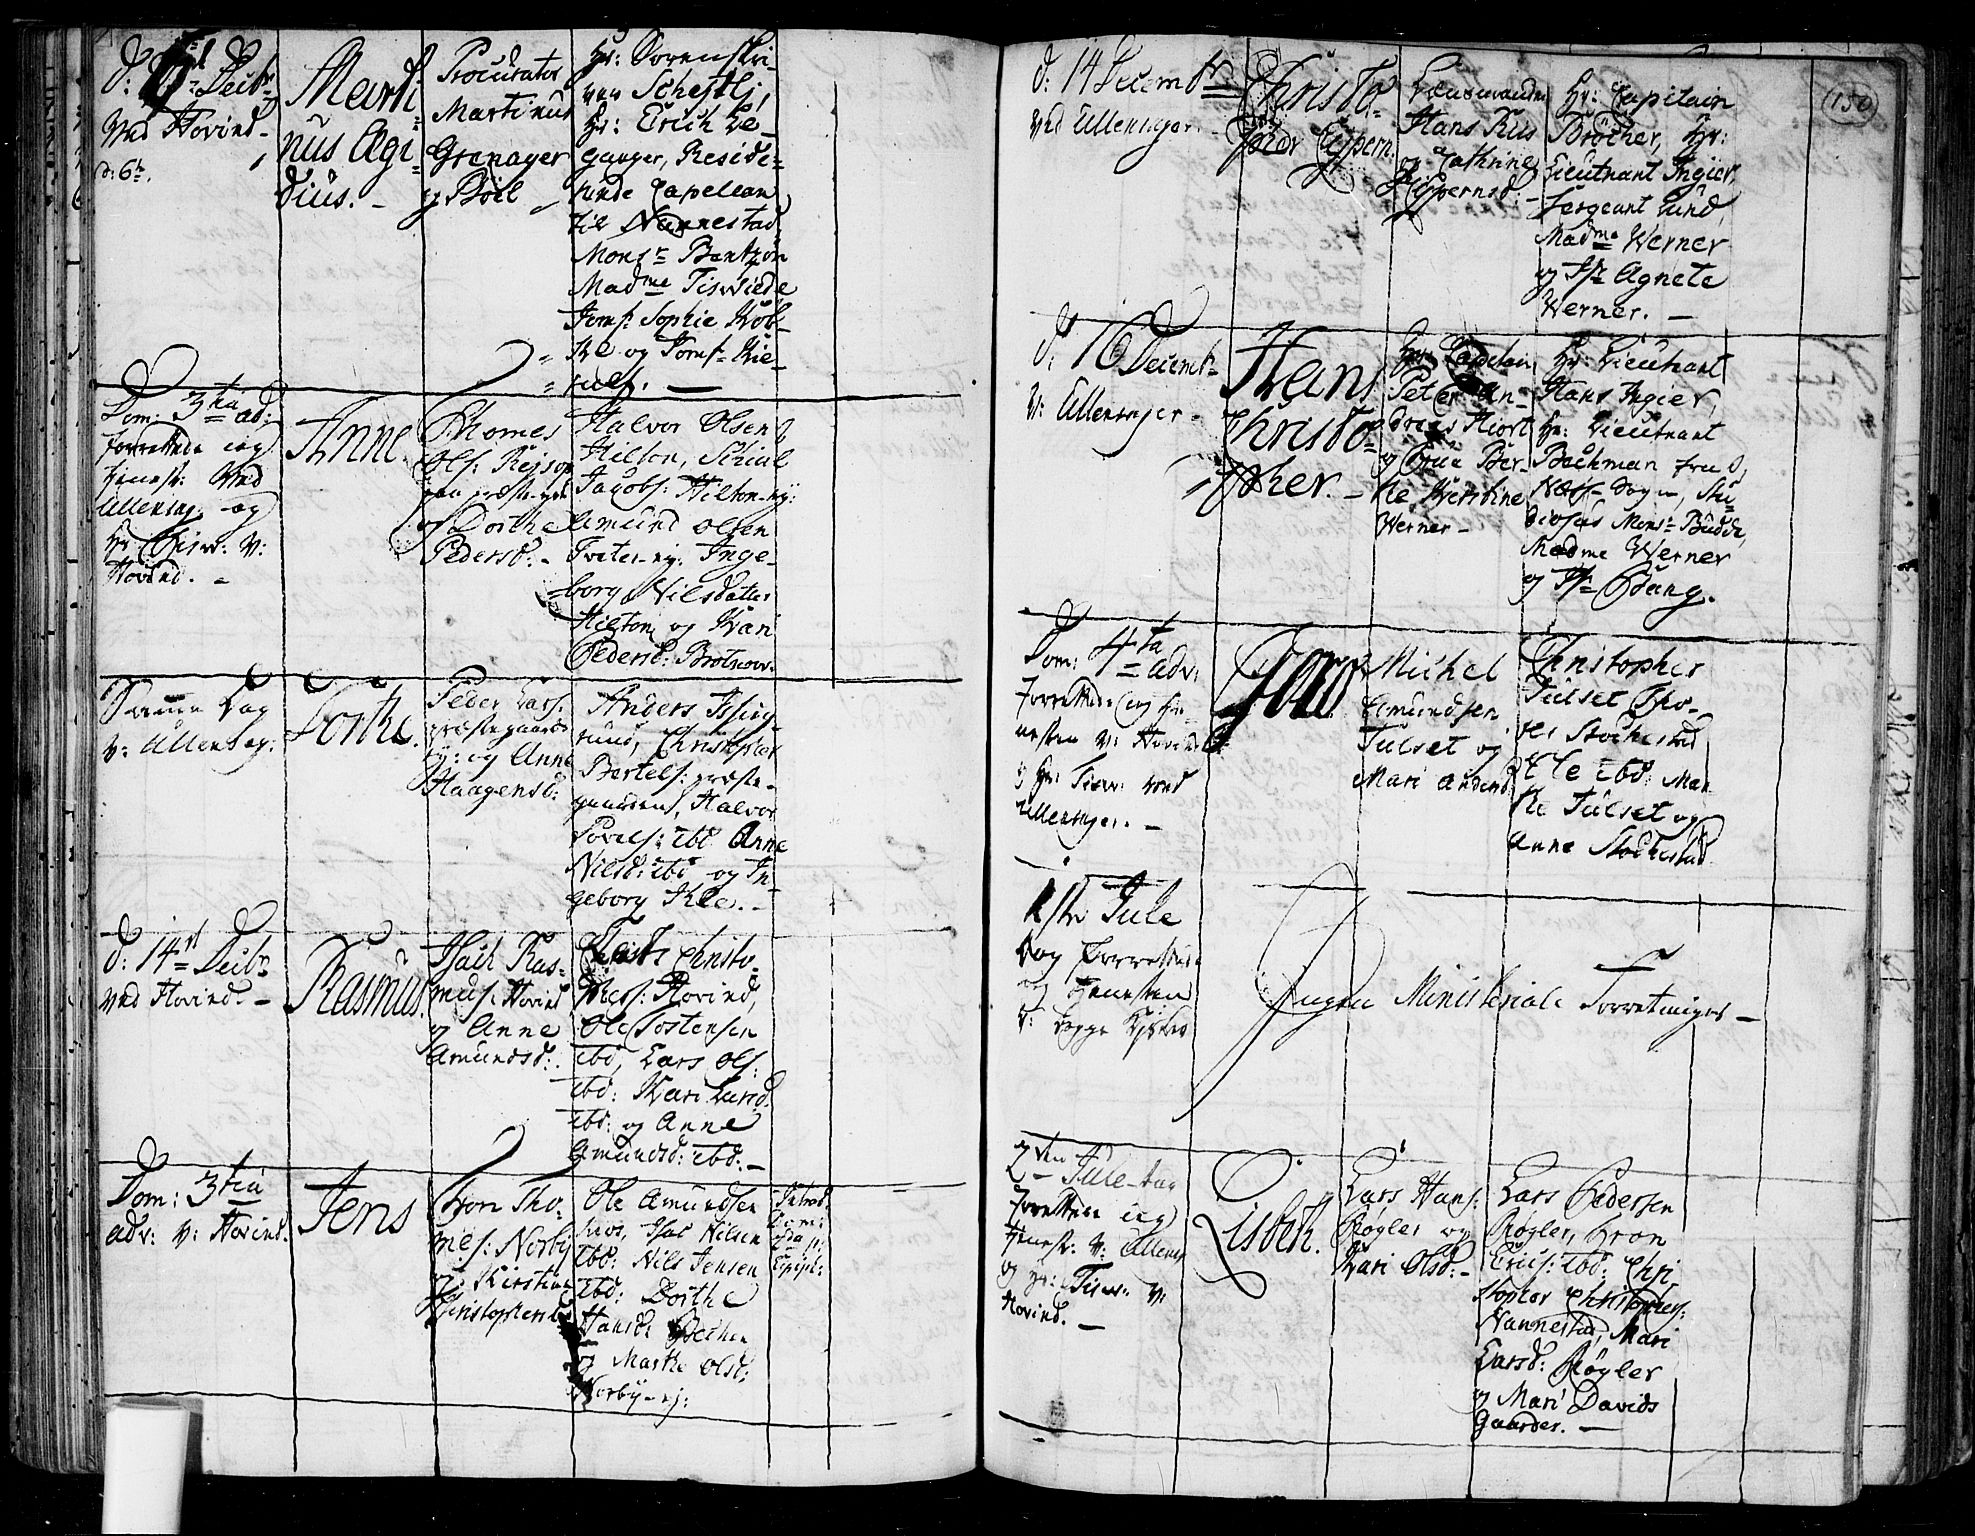 Decbr
Ved Hovind.
d: 6t.
Marti
nus Ægi
dius.
Procurator
Martinus
Grønager
og Boel
Hr: Sorenskri
ver Scheftli,
Hr: Erich Le
ganger, Reside
rende Capellan
til Nannestad
Monsr Bentzon
Madme Tiswiede
Jomf: Sophie Kob
ke og Jomf:
Dom: 3tia ad:
forrettede jeg
tienest: Ved
Ullensag: og
Hr Tisw: V:
Hovind.
Anne.
Thomes
Ols: Reisop
og Dorthe
Pedersd:
Halvor Olsen
Hilton,
Jacobs: Hilton ej:
Amund Olsen
Inge
borg Nilsdatter
Hilton og Kari
Pedersd:
Samme Dag
V: Ullensag:
Dorthe.
Peder Lars:
præstegaards
ej: og Anne
Haagensd:
Anders
rud, Christopher
Bertels: præste
gaarden, Halvor
Povels: ibd Anne
Nilsd: ibd og In
geborg
d: 14de Decbr
ved Hovind.
Rasmus.
Isach Ras
mus: Hovind
og Anne
Amundsd:
Christo
phers: Hovind,
Ole Tostensen
ibd, Lars Ols:
ibd: Kari Larsd.
ibd: og Anne
Amundsd: ibd.
Dom: 3tia
adv: V: Hovind.
Jens
Tron Tho
mes: Norby
og Kirstine
Christophersd
Ole Amundsen
Nilsen
ibd: Nils Jensen
ibd: Dorthe
Hansd:
og Marthe Olsd:
Norby ej:
Introd
Dom:
150
d: 14 Decembr
ved Ullensager.
Christo
pher Eggern.
Lensmanden
Hans Rus
og Cathrine
Eggernsd:
Hr: Capitain
Brøcher, Hr:
Lieutnant Ingier,
Sergeant Lund,
Madme Werner
og Jfr Agnete
Werner.
d: 16 Decemb
V: Ullensager.
Hans
Christo
pher.
Hr: Capelan
Peter An
dreas Hiort
ke Kierstine
Werner
Hr: Lieutnant
Hans Ingier,
Hr: Lieutnant
Bachman fra
Næss Sogn, Stu
diosus Monsr Budde,
Madme Werner
og Jfr Bang.
Dom: 4ta
adv:
forrettede jeg tie
nesten V: Hovind
og Hr: Tisw: ved
Ullensager.
Goro
Michel
Amundsen
Julset og
Mari Andersd:
Christopher
Julset Tho
res Stochestad
Ole ibd: Mar
the Julset og
Anne Stochestad
1ste Jule
Dag Forrettede
og tienesten
V: begge Kirker
Ingen Ministeriale Forretninger
2den Jule-dag
forrettede jeg
tienest: V: Ullens
og Hr: Tisw: V:
Hovind.
Lisbeth.
Lars Hans:
Røgler og
Kari Olsd:
Lars Pedersen
Røgler, Tron
Erics: ibd: Chri
stopher Christophers:
Nannestad, Mari
Larsd: Røgler
og Mari Davids
Gaarder.